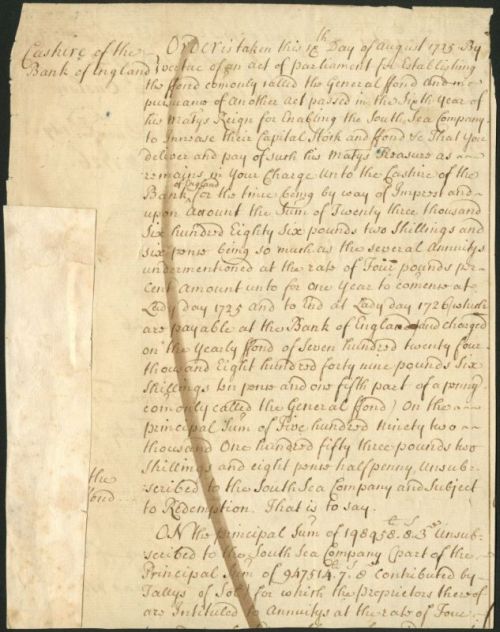 Cashire of the
Bank of England
Order is taken this 18th Day of August 1725 By
vertue of an act of parliament for Establishing
the ffond comonly called the General ffond and in
pursuance of Another Act passed in the Sixth Year of
his Matys Reign for Enabling the South Sea Company
to Increase their Capital Stock and ffond &c That You
deliver and pay of such his Matys Treasure as
remains in Your Charge unto the Cashire of the
Bank of England for the time being by way of Imprest and
upon Account the Sum of Twenty three thousand
Six hundred Eighty Six pounds two Shillings and
six pence being so much as the several Annuitys
undermentioned at the rate of Four pounds per
Cent Amount unto for one Year to comence at
Lady day 1725 and to End at Lady day 1726 which
are payable at the Bank of England and charged
on the Yearly ffond of Seven hundred twenty four
thousand Eight hundred forty nine pounds Six
Shillings ten pence and one fifth part of a penny
comonly called the General ffond) On the
principal Sum of Five hundred ninety two
thousand One hundred fifty three pounds two
Shillings and eight pence halfpenny Unsub-
scribed to the South Sea Company and Subject
to Redemption. That is to say.
the
ON the principal Sum of 198958. 8. 3 Unsub-
scribed to the South Sea Company (part of the
Principal Sum of 947514. 7. 8 Contributed by
Tallys of for which the proprietors thereof
are Intituled to Annuitys at the rate of Four